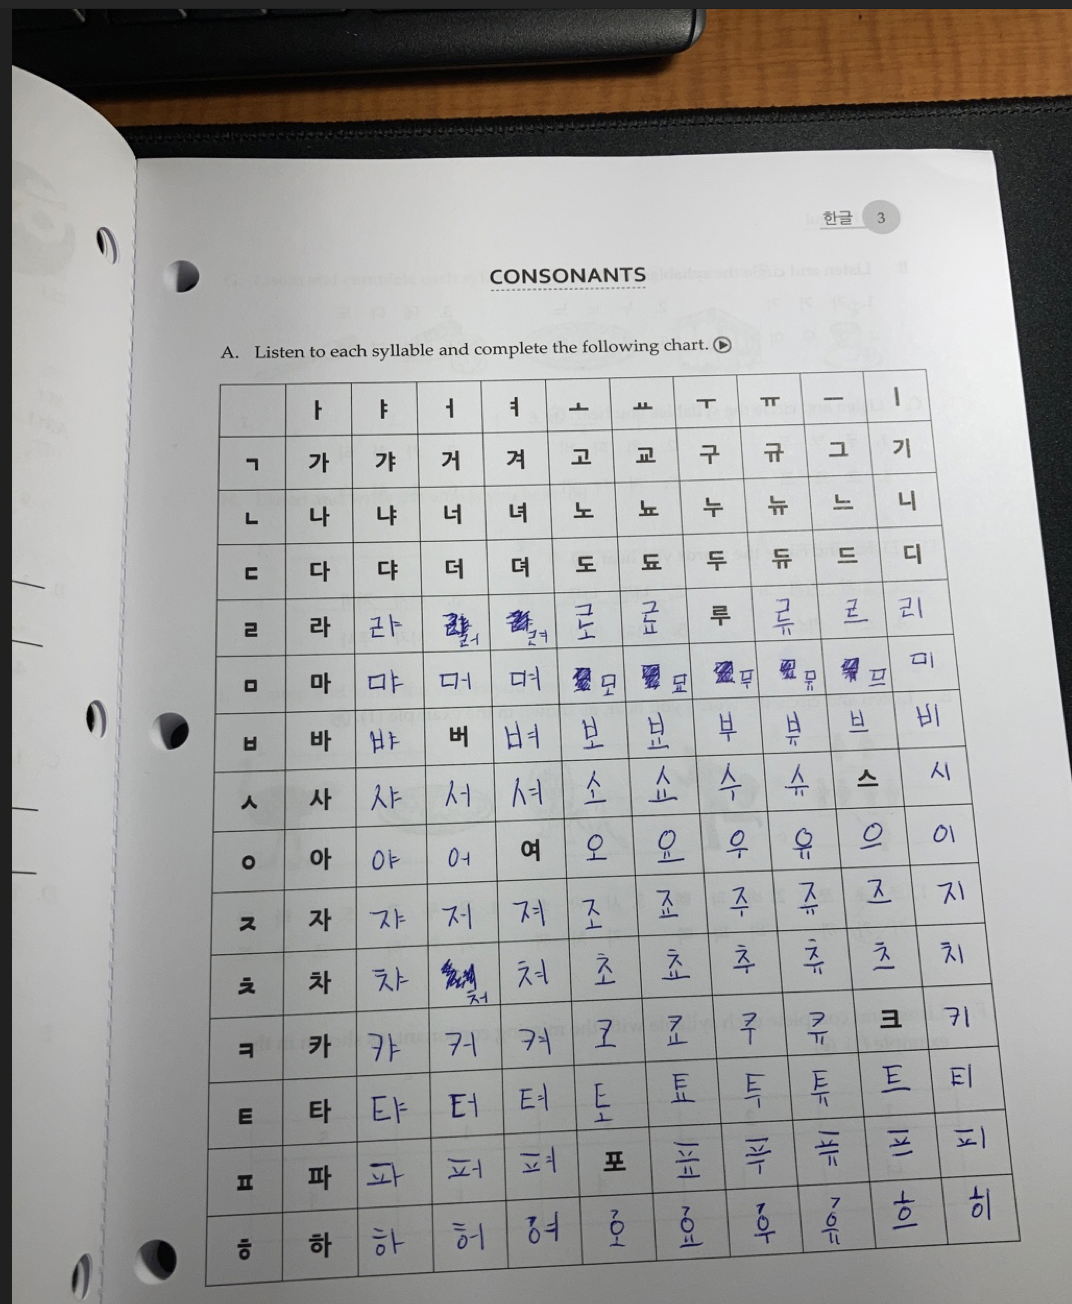 한글 3
CONSONANTS
A. Listen to each syllable and complete the following chart.
ㅏ ㅑ ㅓ ㅕ ㅗ ㅛ ㅜ ㅠ ㅡ ㅣ
ㄱ 가 갸 거 겨 고 교 구 규 그 기
ㄴ 나 냐 너 녀 노 뇨 누 뉴 느 니
ㄷ 다 댜 더 뎌 도 됴 두 듀 드 디
ㄹ 라 랴 러 려 로 료 루 류 르 리
ㅁ 마 먀 머 며 모 묘 무 뮤 므 미
ㅂ 바 뱌 버 벼 보 뵤 부 뷰 브 비
ㅅ 사 샤 서 셔 소 쇼 수 슈 스 시
ㅇ 아 야 어 여 오 요 우 유 으 이
ㅈ 자 쟈 저 져 조 죠 주 쥬 즈 지
ㅊ 차 챠 처 쳐 초 쵸 추 츄 츠 치
ㅋ 카 캬 커 켜 코 쿄 쿠 큐 크 키
ㅌ 타 탸 터 텨 토 툐 투 튜 트 티
ㅍ 파 파 퍼 펴 포 표 푸 퓨 프 피
ㅎ 하 하 허 혀 호 효 후 휴 흐 히